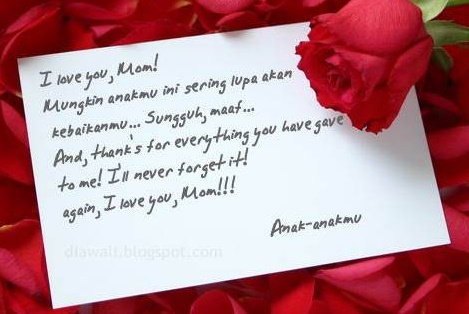 I love you, Mom!
Mungkin anakmu ini sering lupa akan
kebaikanmu... Sungguh, maaf...
And, thank's for everything you have gave
to me! I'll never forget it!
again, I love you, Mom!!!
Anak-anakmu
diawali.blogspot.com